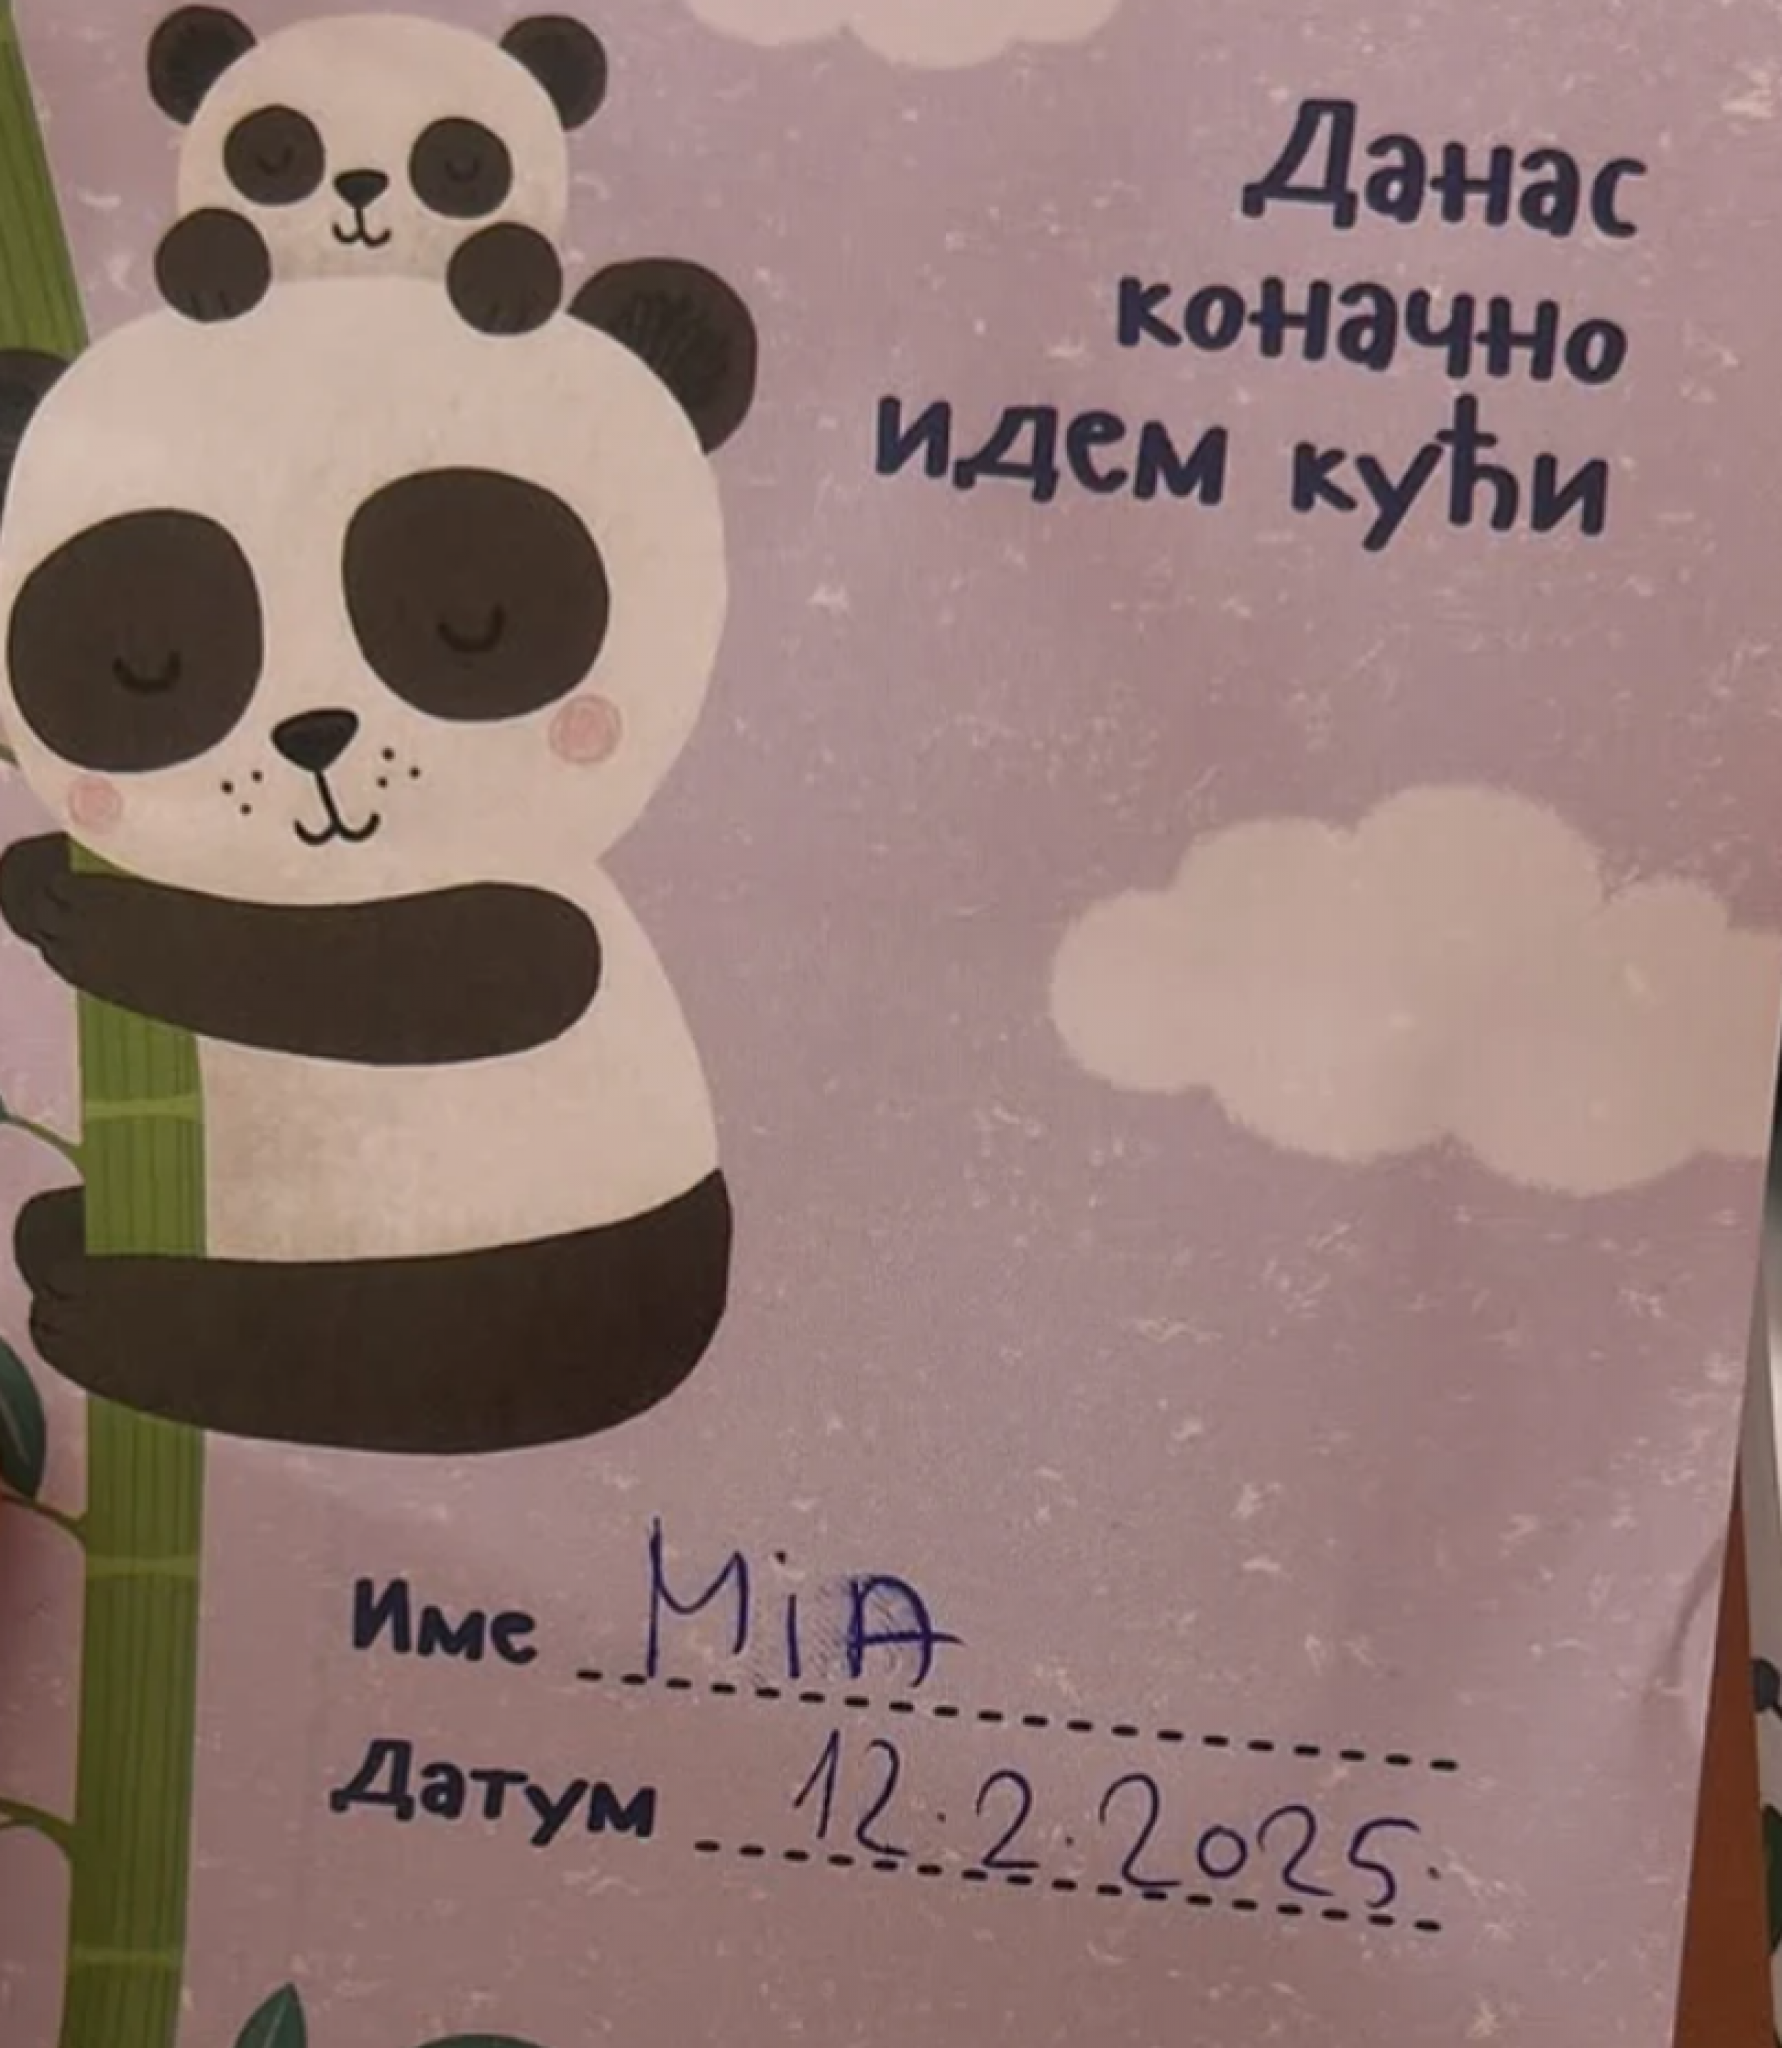 Данас
коначно
идем кући
Име MiA
Датум 12.2.2025.